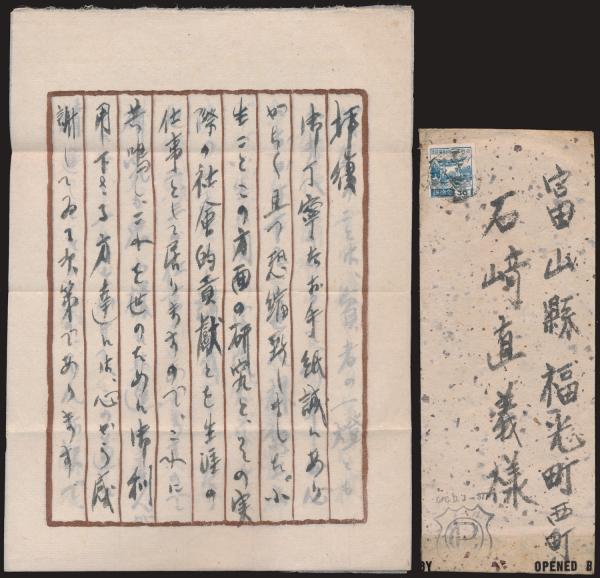 拝復
御丁寧なお手紙誠にあり
がたく且つ恐縮致しました。小
生はこの方面の研究と、その実
際の社会的貢献とを生涯の
仕事として居りますので、これに
共鳴し、これを世のために御利
用下さる方達には、心から感
謝してゐる次第であります
富山縣福光町西町
石崎直義様
OPENED B
BY